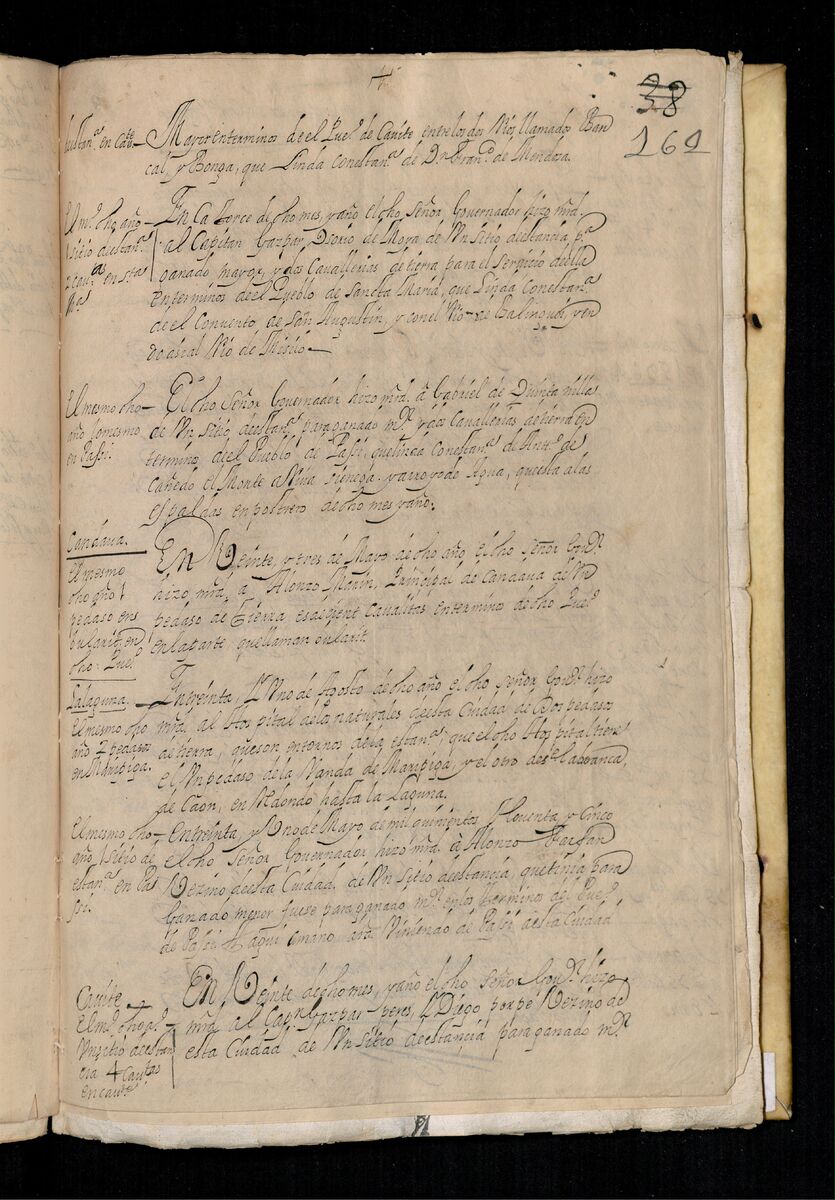 +
38
161
de estan.ª en Caᵗᵉ.
Mayor enterminos de el Pue.º de Cavite entre los dos Rios, llamados Ban
cal, y Bonga, que Linda Con estan.ª de D.ⁿ Fran.ᶜᵒ de Mendoza.
El m.º dho año
1 sitio de estan.ª
2 cauᵗᵃˢ en Sᵗᵃ
Mª
En Catorce de dho mes, y año el dho, Señor, Governador hizo mrd.
al Capitan Gazpar Osorio de Moya, de Vn Sitio de estancia, pª
ganado mayor, y dos Cavallerias de tierra para el Servicio de ella
en terminos de el Pueblo de Sancta Maria, que Linda Con estan.ª
de el Convento de San Augustin, y con el Rio de Balingudi, yen
do asia al Rio de Misilo.
El mesmo dho
año lo mesmo
en Pasi.
El dho Señor Governador hizo mrd. â Gabriel de Quinta nilla
de Vn sitio, de estan.ª para ganado m.ʳ y dos Cavallerias de tierra en
termino de el Pueblo de Pasi, que linda Con estan.ª de Ant.º de
Cañedo el Monte a Vna Sienega, y arroyo de Agua, que esta a las
espaldas en postrero de dho mes y año.
Candava.
El mesmo
dho año 1
pedaso en s
dularit, en
dho Pue.º
En Veinte, y tres de Mayo de dho año el dho Señor Gov.ʳ
hizo mrd. a Alonzo Marin, Principal de Candava de Vn
pedaso de Tierra, es a saver Cavalitas en terminos de dho Pue.º
en la parte, que llaman dularit.
La laguna.
El mesmo dho
año 2 pedasos
en Maripiga.
En treinta, Y Vno de Agosto de dho año el dho Señor Gov.ʳ hizo
mrd. al Hospital de los naturales de esta Ciudad de Dos pedasos
de tierra, que son en tornos de la estan.ª, que el dho Hospital tiene
el Vn pedaso de la Vanda de Maripiga, y el otro de la barranca,
de Caon, en Redondo hasta la Laguna.
El mesmo dho
año, 1 sitio de
estan.ª en Pa
si.
En treinta, y Vno de Mayo de mil quinientos Noventa, y Cinco
el dho Señor Governador hizo mrd. â Alonzo
Vezino de esta Ciudad de Vn Sitio de estancia, que tenia para
Ganado menor fuese para ganado m.ʳ en los terminos de Pue.º
de Pasi Taqui â mano Viniendo de Pasi â esta Ciudad
Cavite
El m.º dho a.º
Vn sitio de estan
cia 4 Cauᵗᵃˢ
en cauᵗᵉ
En Veinte de dho mes, y año el dho Señor Gov.ʳ hizo
mrd. al Cap.ⁿ Gazpar peres, Y Diego por pe Vezino de
esta Ciudad de Vn Sitio de estancia para ganado m.ʳ